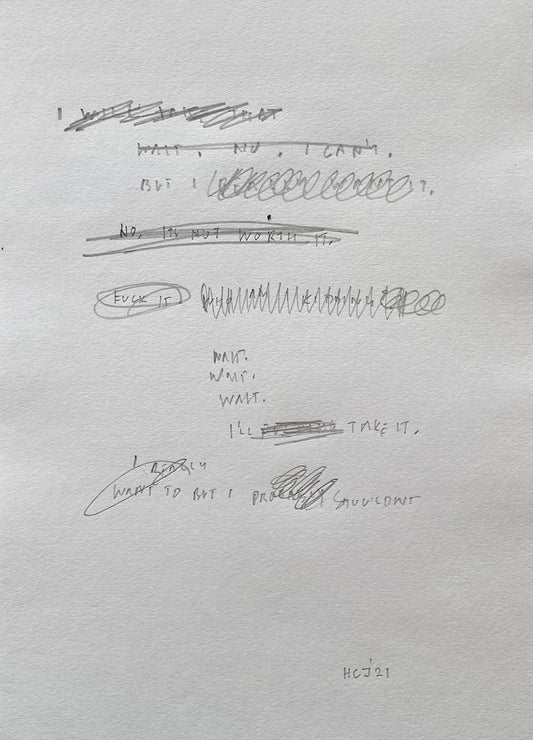 I WILL THAT
WAIT. NO. I CAN'T.
BUT I IT.
NO, ITS NOT WORTH IT.
FUCK IT.
WAIT.
WAIT.
WAIT.
I'LL TAKE IT.
I REALLY
WANT TO BUT I PROBABLY SHOULDNT
HCJ'21